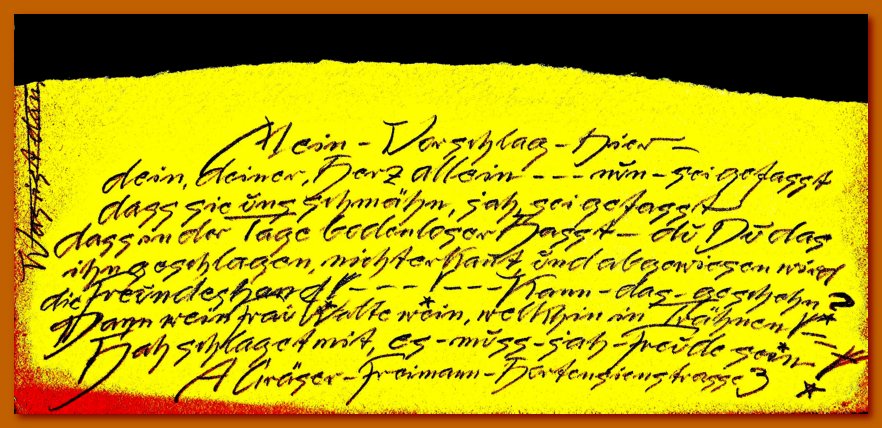 Mein - Vorschlag - hier -
dein, deiner, Herz allein - - - nun - sei gefasst
dass sie uns schmähn, jah, sei gefasst
dass an der Tage bodenloser Hasst - du Du das
ihn geschlagen, nicht erkannt und abgewiesen wird
die Freundeshand! - - - ! - - - Kann - das - geschehn?
Dann wein trau Walte wein, welthin in Trähnen!
Hah schlaget mit, es - muss - jah - Freude sein
A Gräser - Freimann - Hortensienstrasse 3
Was ist